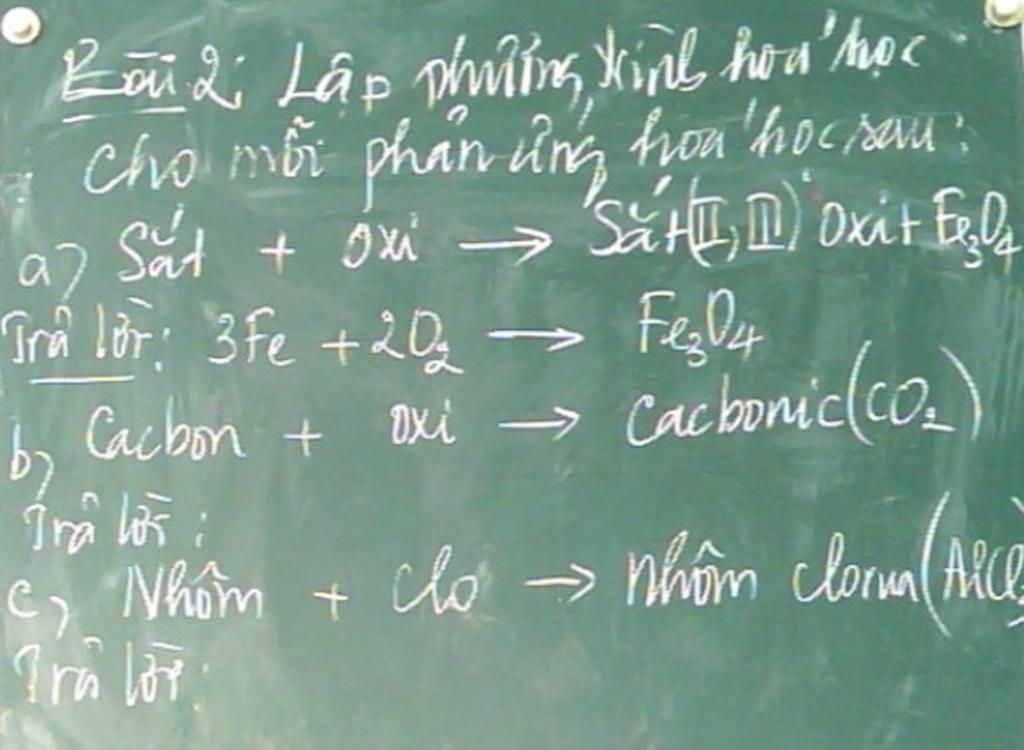 Bài 2: Lập phương trình hoá học
cho mỗi phản ứng hoá học sau:
a) Sắt + Oxi → Sắt(II, III) Oxit Fe₃O₄
Trả lời: 3Fe + 2O₂ → Fe₃O₄
b) Cacbon + Oxi → Cacbonic(CO₂)
Trả lời:
c) Nhôm + Clo → Nhôm clorua(AlCl₃)
Trả lời: